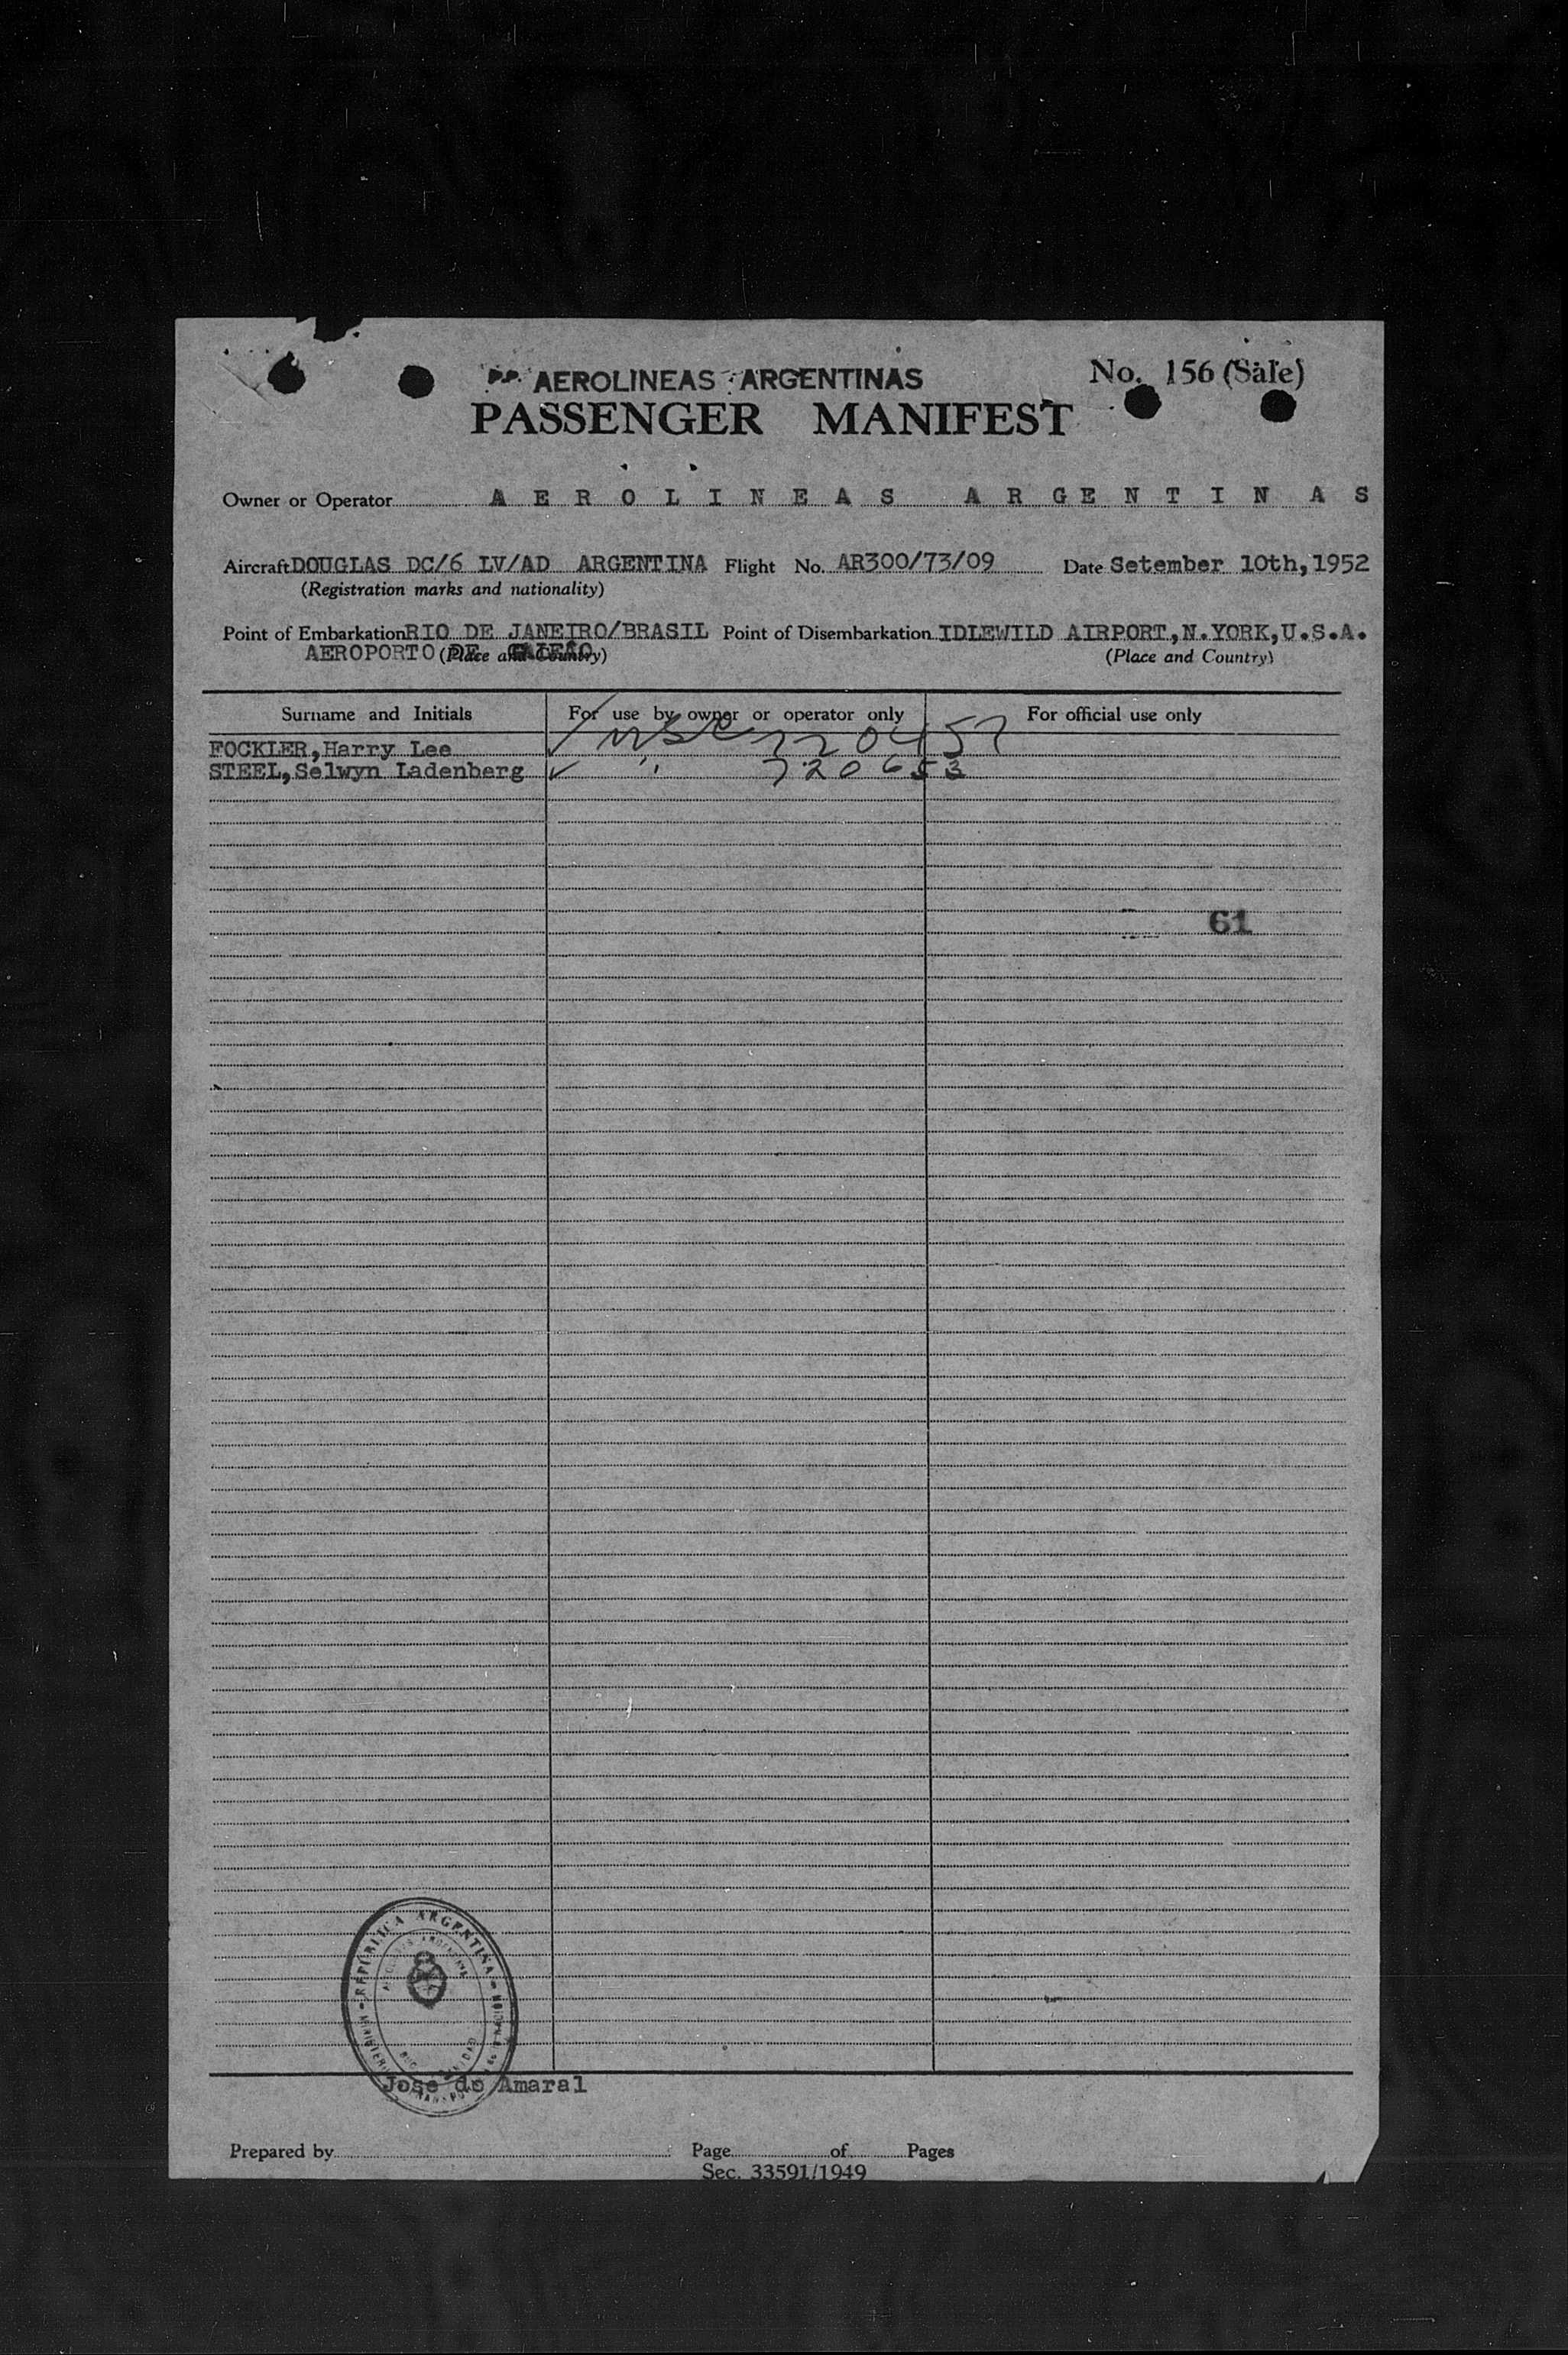 AEROLINEAS ARGENTINAS
No. 156 (Sale)
PASSENGER MANIFEST
Owner or Operator A E R O L I N E A S A R G E N T I N A S
Aircraft DOUGLAS DC/6 LV/AD ARGENTINA Flight No. AR300/73/09 Date Setember 10th, 1952
(Registration marks and nationality)
Point of Embarkation RIO DE JANEIRO/BRASIL Point of Disembarkation IDLEWILD AIRPORT.,N.YORK,U.S.A.
AEROPORTO DE GALEÃO (Place and Country) (Place and Country)
Surname and Initials For use by owner or operator only For official use only
FOCKLER,Harry Lee ✓ 720457
STEEL,Selwyn Ladenberg ✓ " 720653
61
REPÚBLICA ARGENTINA
Jose do Amaral
Prepared by Page of Pages
Sec. 33591/1949